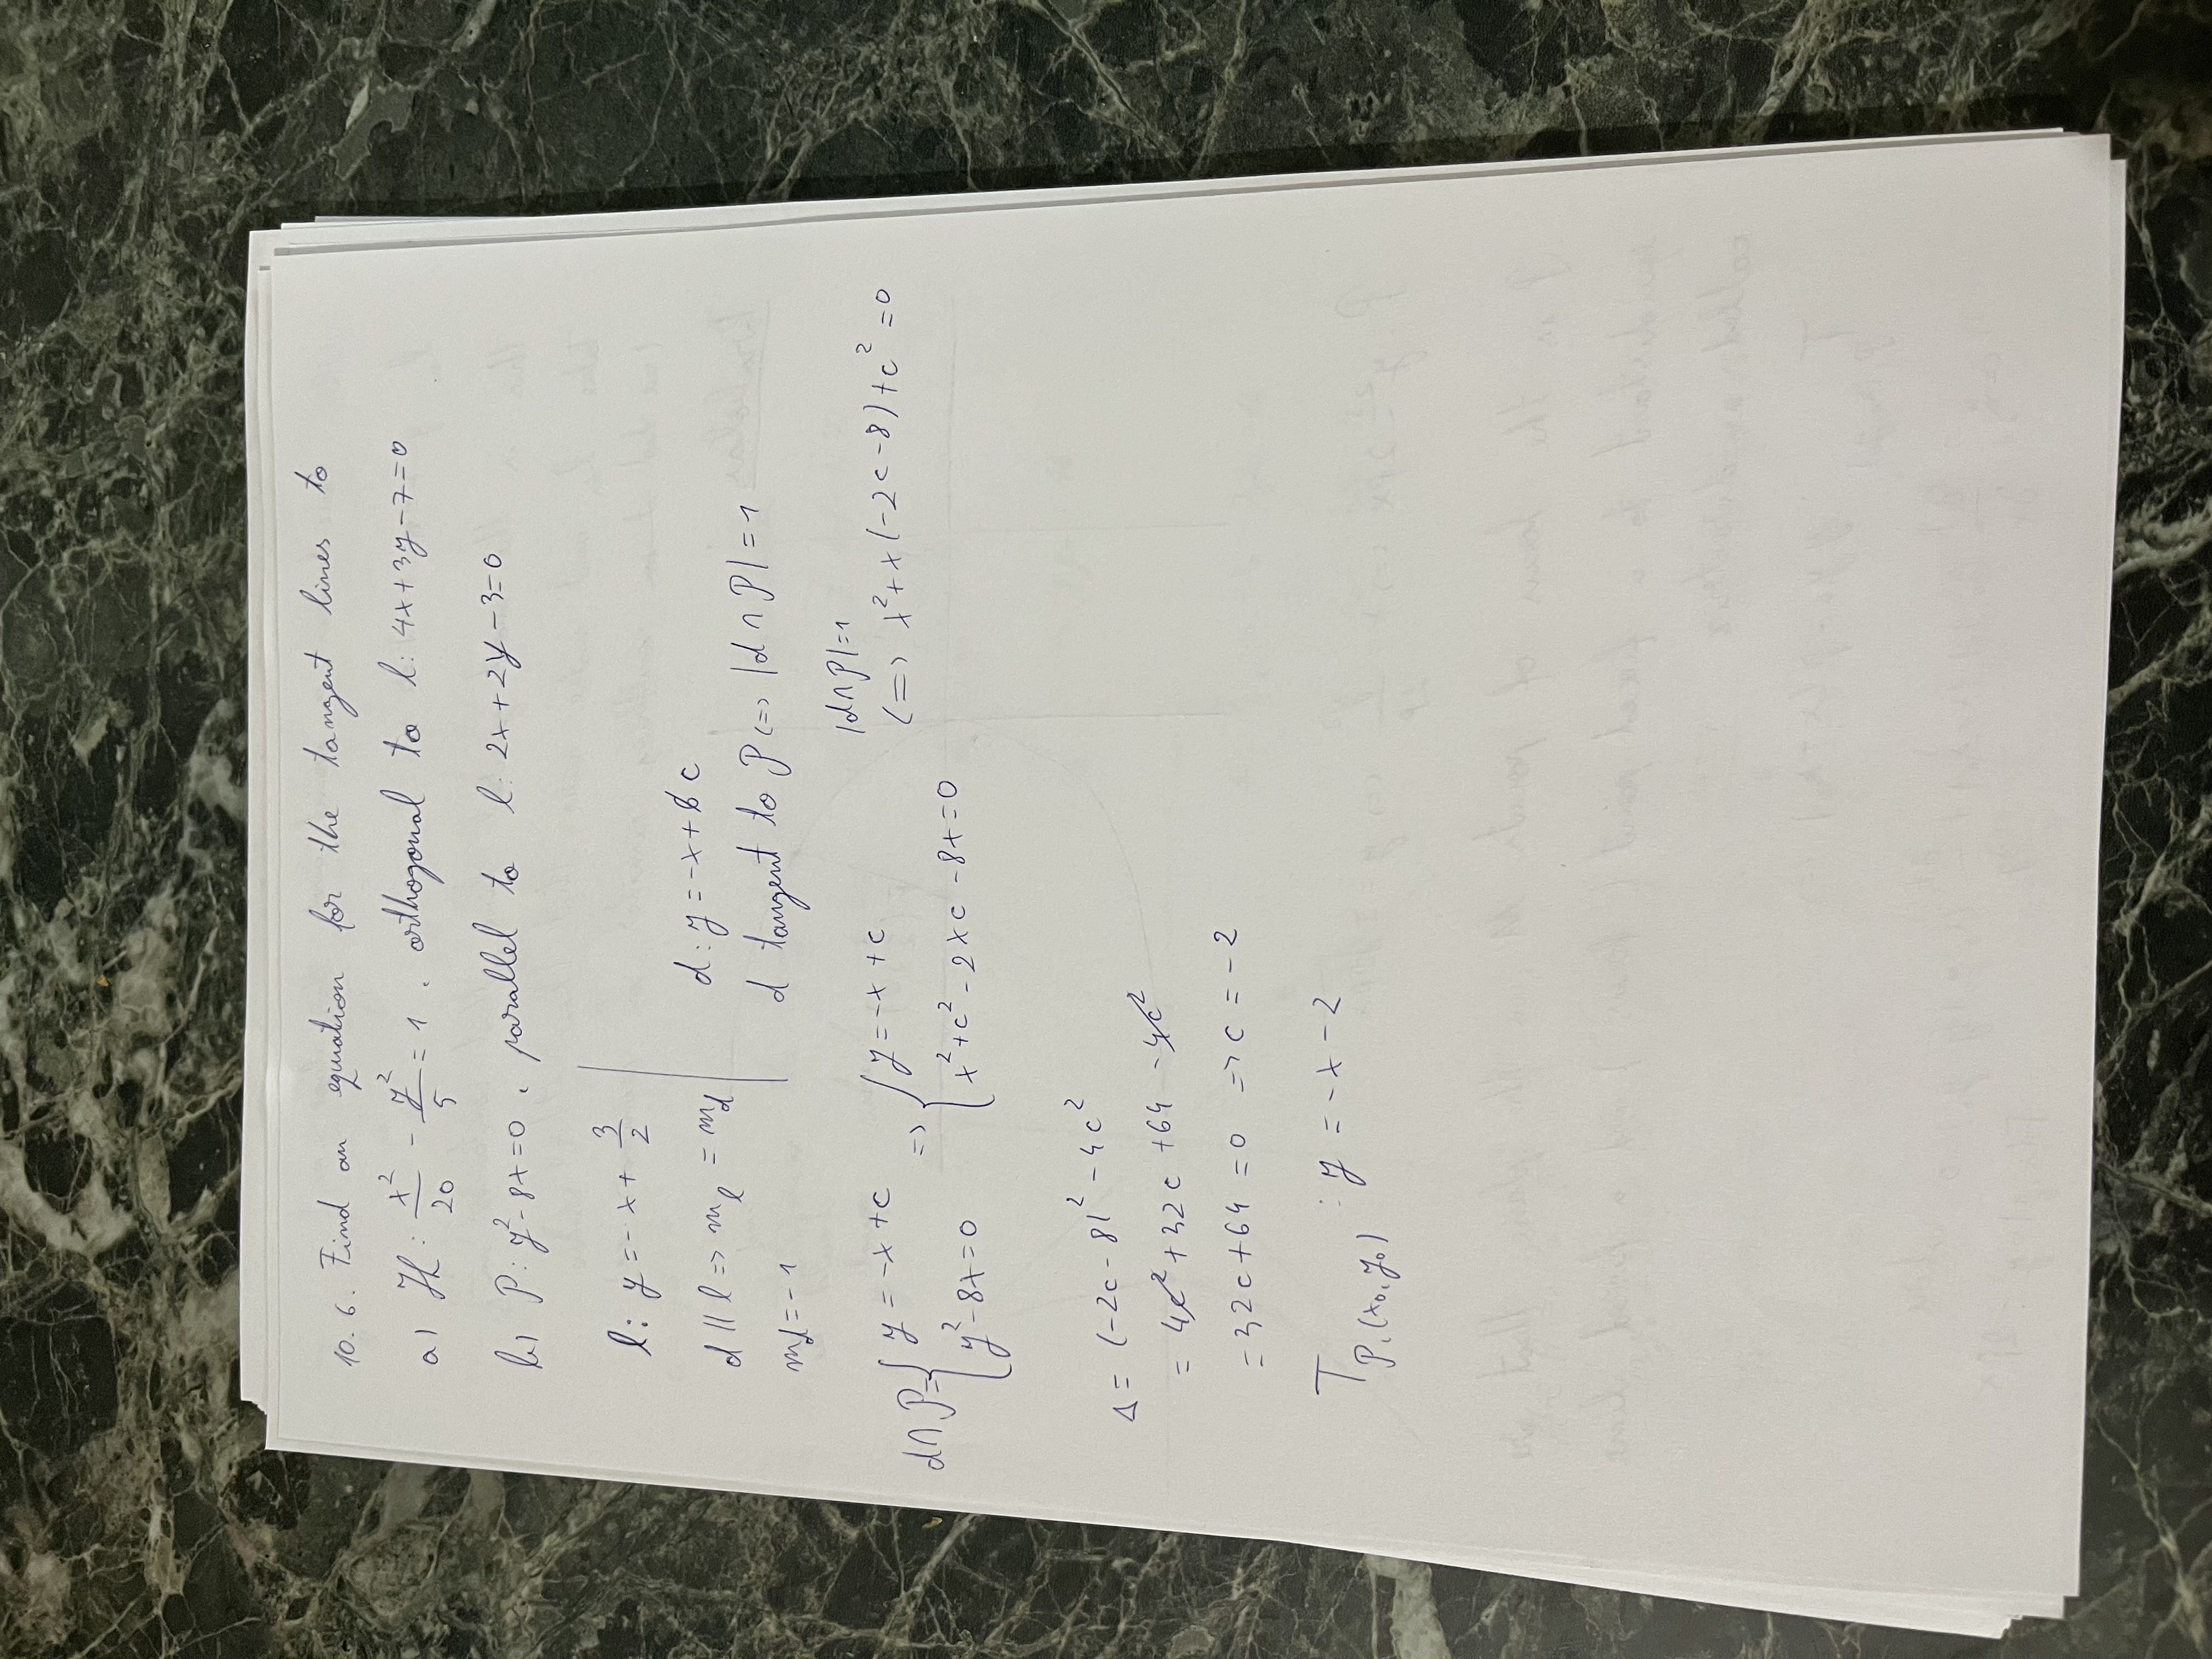 10.6. Find an equation for the tangent lines to
a) H: x²/20 - y²/5 = 1, orthogonal to l: 4x+3y-7=0
b) P: y²-8x=0, parallel to l: 2x+2y-3=0
l: y=-x+3/2
d || l => m_l = m_d
m_d=-1
d: y=-x+c
d tangent to P <=> |d∩P|=1
d∩P={ y=-x+c
y²-8x=0
=> { y=-x+c
x²+c²-2xc-8x=0
|d∩P|=1
<=> x²+x(-2c-8)+c²=0
Δ= (-2c-8)²-4c²
= 4c²+32c+64-4c²
=32c+64=0 => c=-2
T_P,(x₀,y₀) : y=-x-2